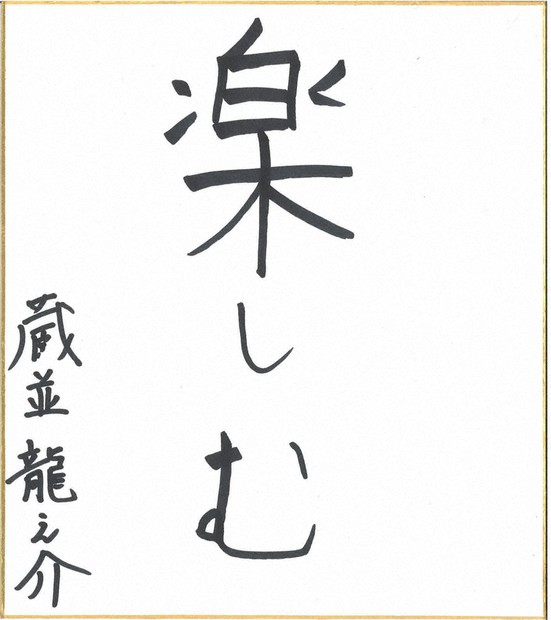 楽しむ
蔵並 龍之介